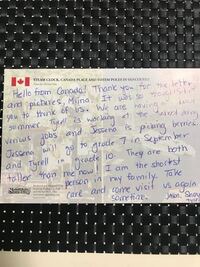 STEAM CLOCK, CANADA PLACE AND TOTEM POLES IN VANCOUVER
Hello from Canada! Thank you for the letter
and pictures, Miina. It was so
you to think of us. We are having a
summer. Tyrell is working at the
various jobs and Jessena is picking berries.
Jessena will go to grade 7 in September
and Tyrell in grade 10. They are both
taller than me now! I am the shortest
person in my family. Take
care and come visit us again
sometime.